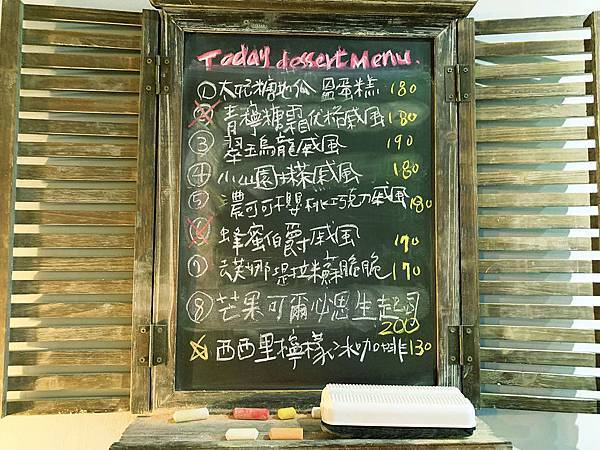 Today dessert Menu.
① 太妃糖地瓜 盆蛋糕 180
② 青檸糖霜優格戚風 180
③ 翠玉烏龍戚風 190
④ 小山園抹茶戚風 180
⑤ 濃可可櫻桃巧克力戚風 180
⑥ 蜂蜜伯爵戚風 170
⑦ 蒙娜提拉米蘇脆脆 170
⑧ 芒果可爾必思生起司 200
☆ 西西里檸檬冰咖啡 130